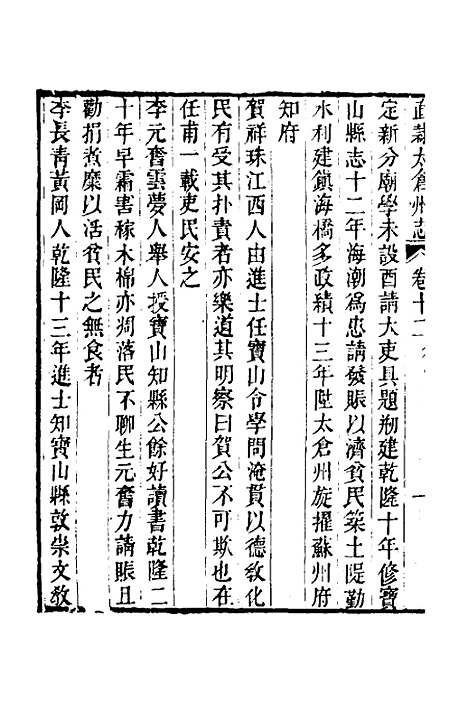 直隸太倉州志 卷十二
定新分廟學未設酉請大吏具題剏建乾隆十年修寶
山縣志十二年海潮為患請發賑以濟貧民築土隄勤
水利建鎮海橋多政績十三年陞太倉州旋擢蘇州府
知府
賀祥珠江西人由進士任寶山令學問淹貫以德敎化
民有受其扑責者亦樂道其明察曰賀公不可欺也在
任甫一載吏民安之
李元奮雲夢人舉人授寶山知縣公餘好讀書乾隆二
十年早霜害稼木棉亦凋落民不聊生元奮力請賑且
勸捐煮糜以活貧民之無食者
李長青黃岡人乾隆十三年進士知寶山縣敦崇文敎